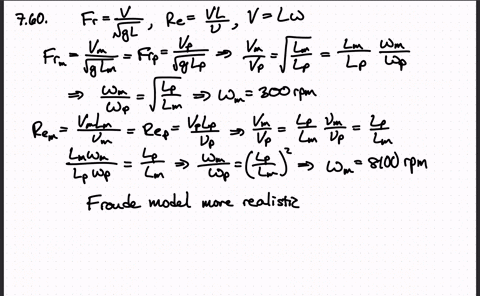 7.60. Fr = V/√gL, Re = VL/υ, V = Lω
Frm = Vm/√gLm = Frp = Vp/√gLp ⇒ Vm/Vp = √Lm/Lp = Lm/Lp ωm/ωp
⇒ ωm/ωp = √Lp/Lm ⇒ ωm = 300 rpm
Rem = VmLm/υm = Rep = VpLp/υp ⇒ Vm/Vp = Lp/Lm υm/υp = Lp/Lm
Lmωm/Lpωp = Lp/Lm ⇒ ωm/ωp = (Lp/Lm)² ⇒ ωm = 8100 rpm
Froude model more realistic